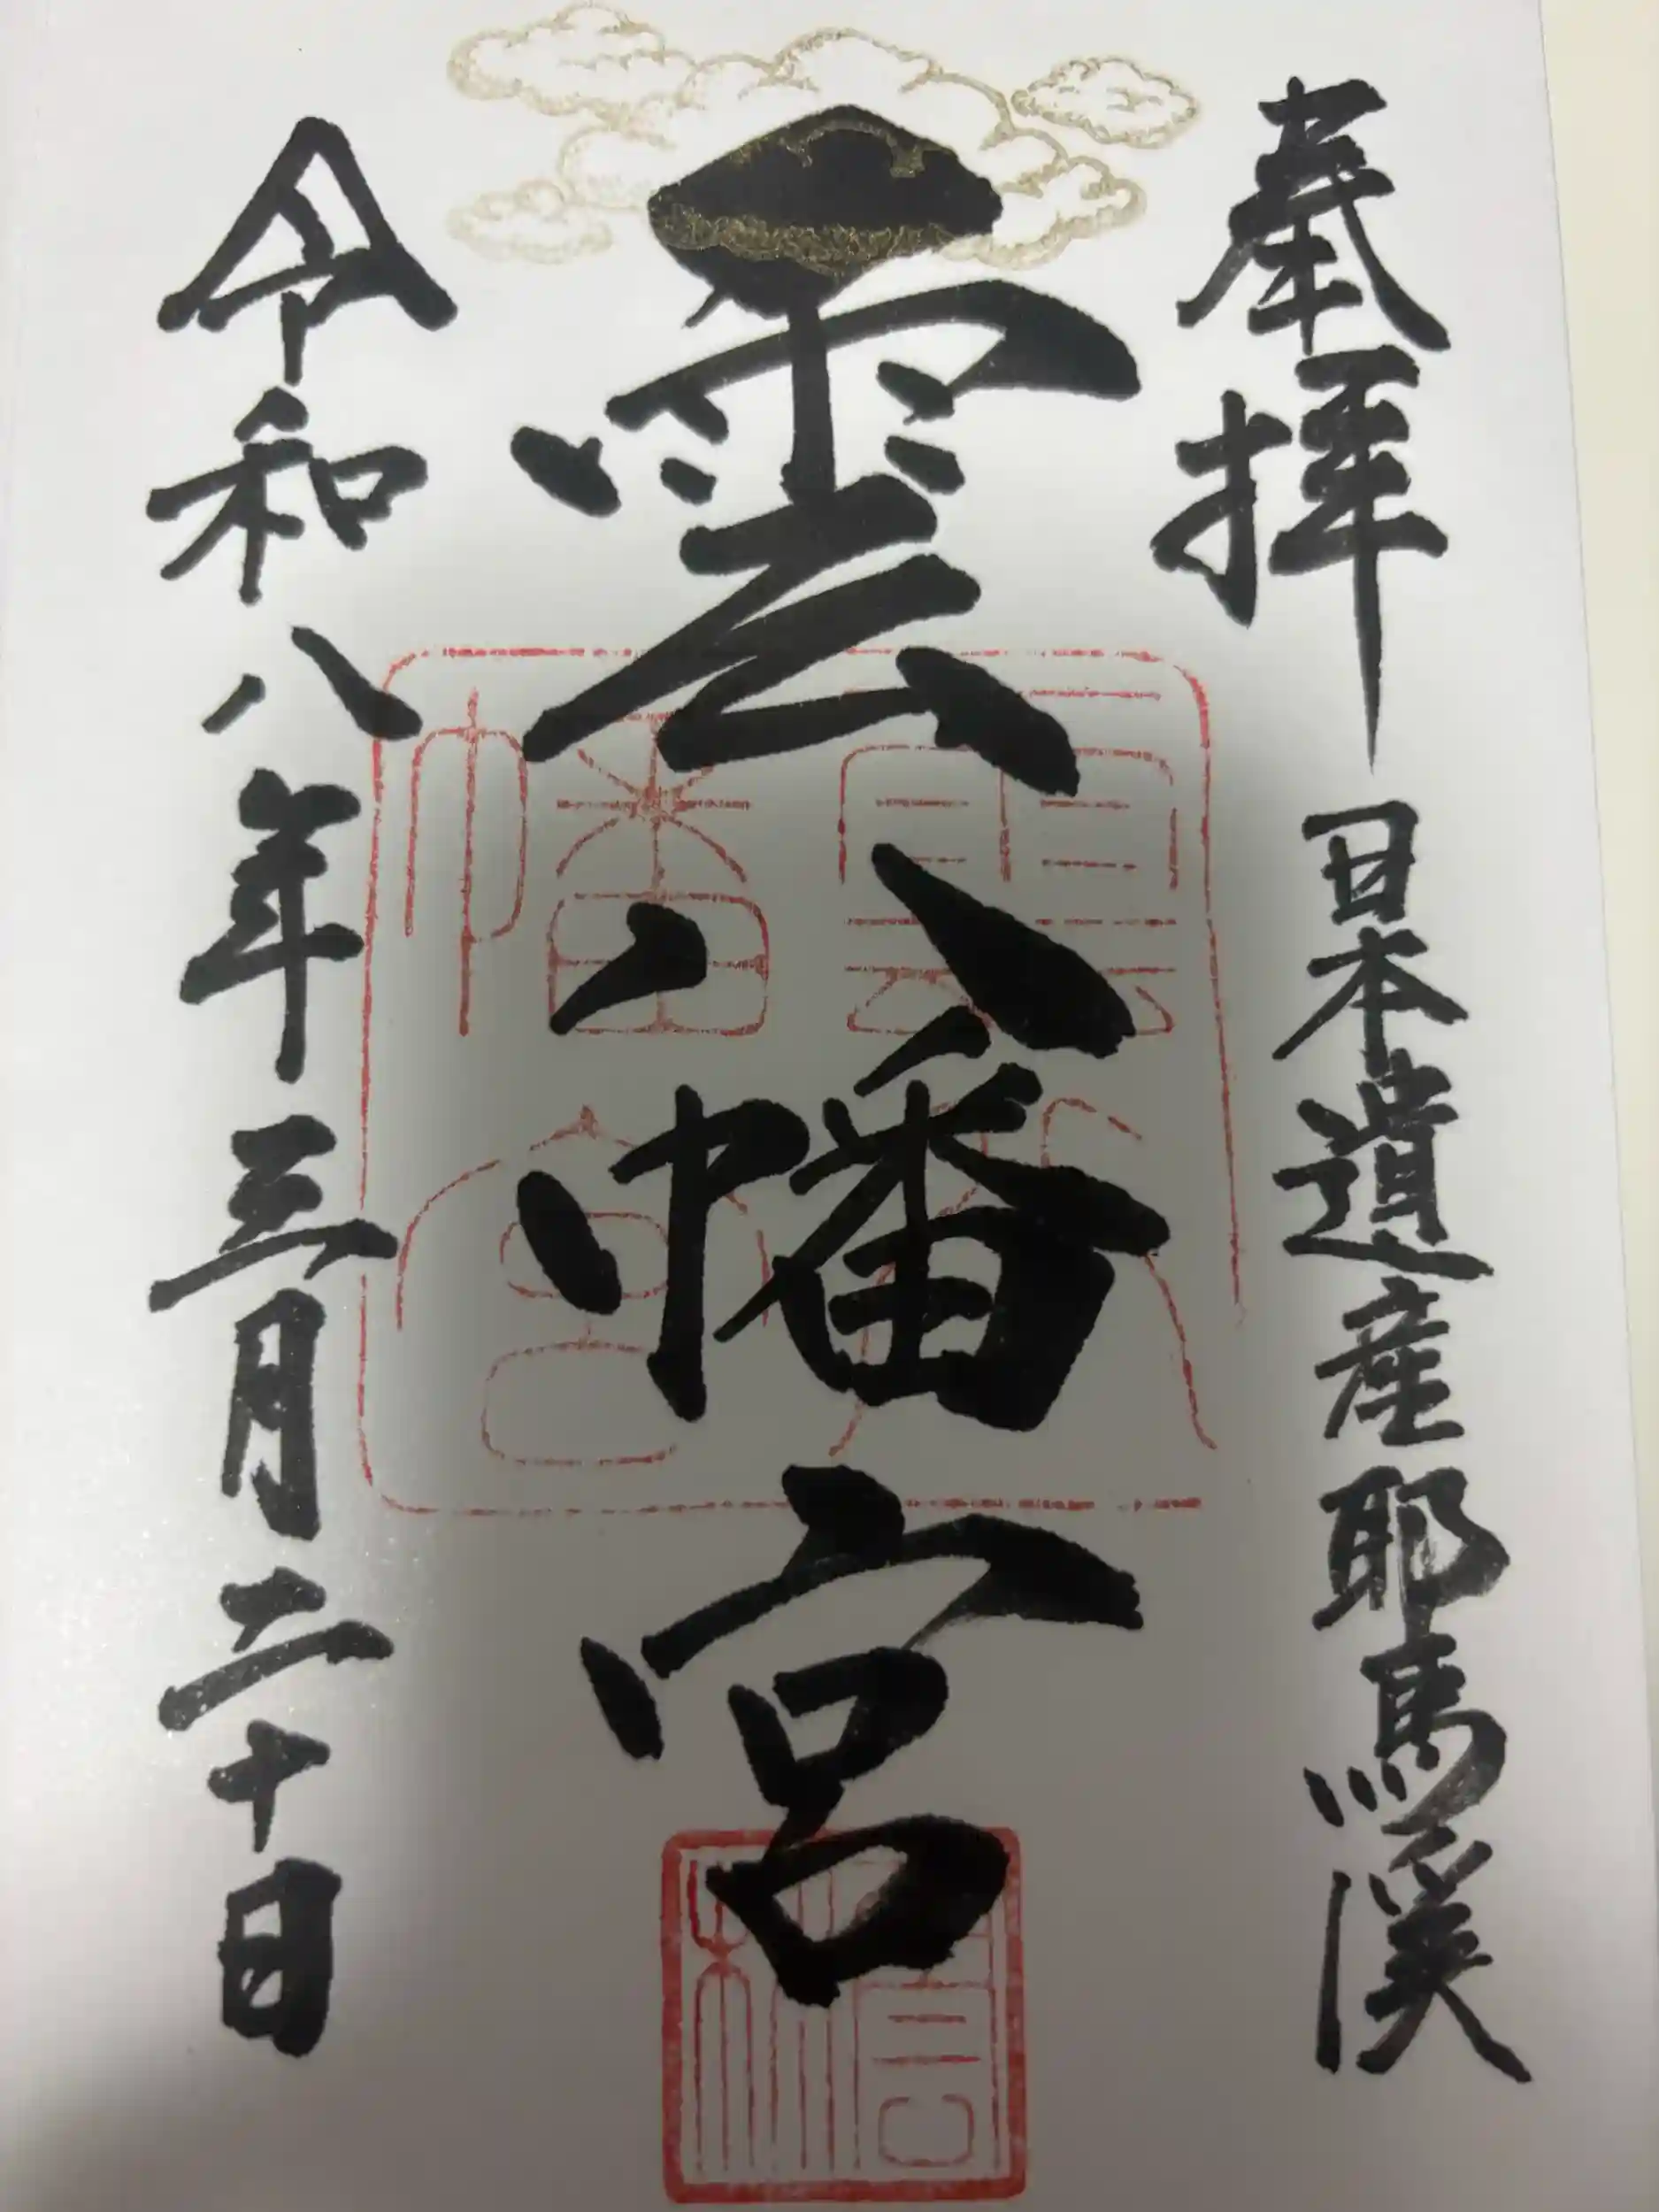 奉拝 日本遺産耶馬渓
雲八幡宮
令和八年三月二十日